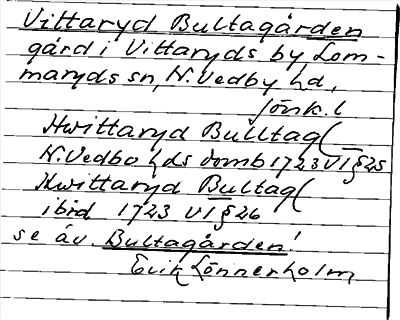 Vittaryd Bultagården
gård i Vittaryds by, Lom-
maryds sn, N. Vedby hd,
Jönk. l
Hwittaryd Bulltag(
N. Vedbo hds domb 1723 VI § 25
Hwittaryd Bultag(
ibid 1723 VI § 26
se äv. Bultagården!
Erik Lönnerholm